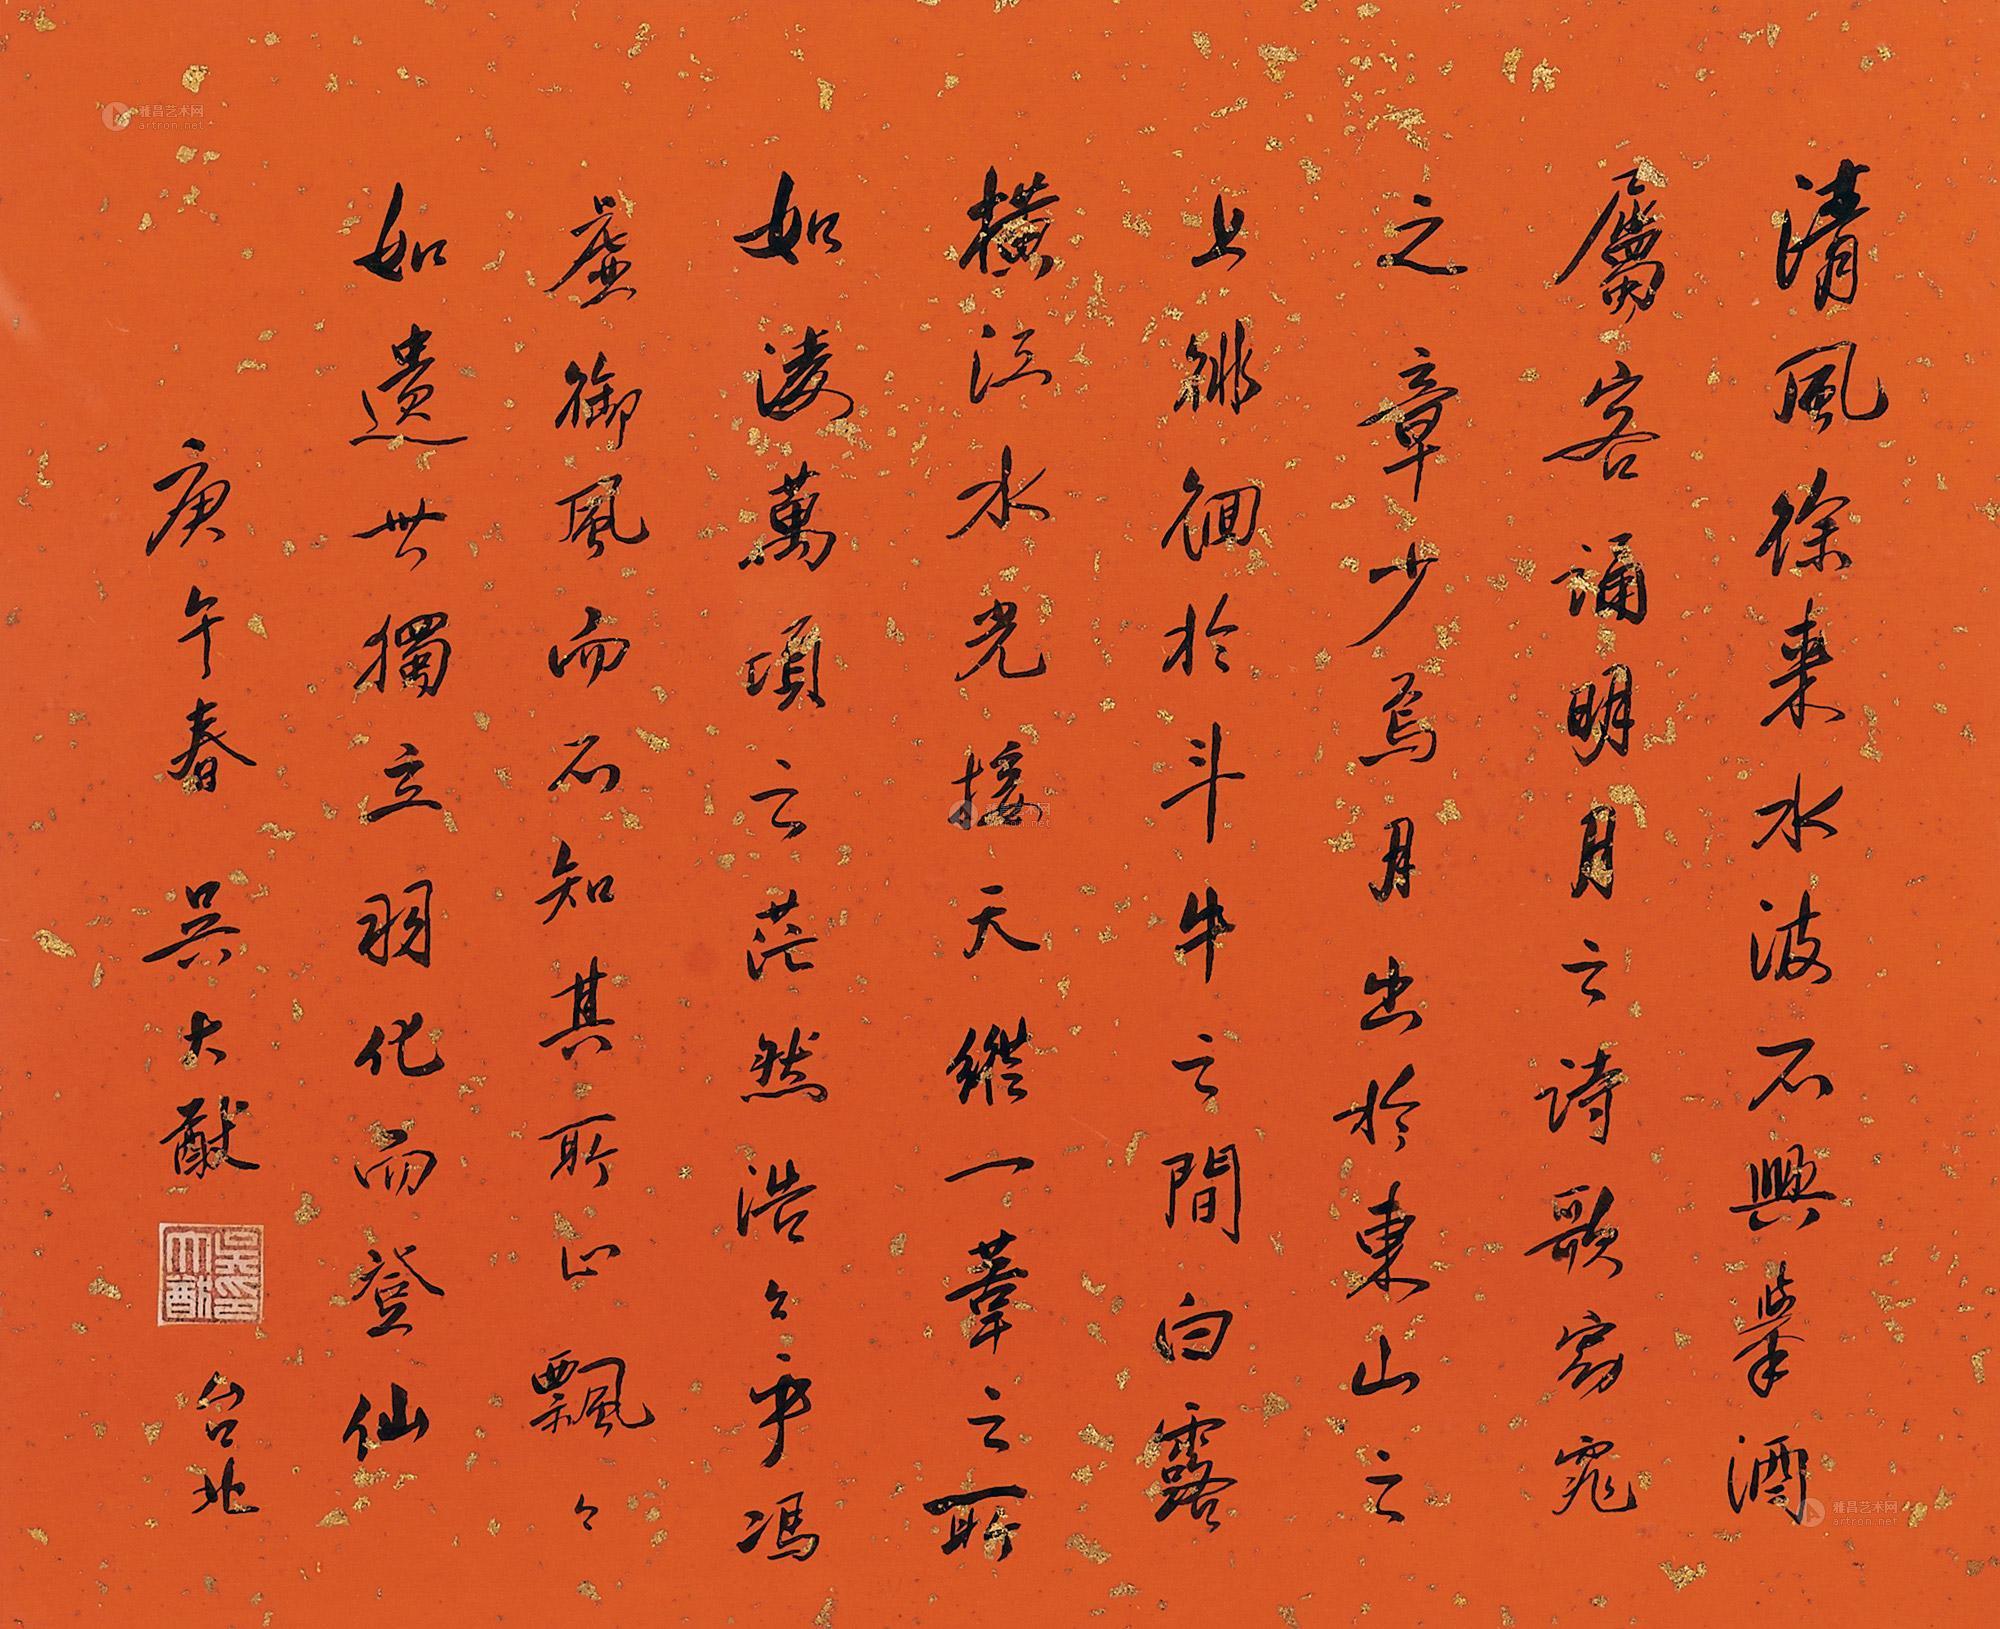 清風徐來水波不興舉酒
屬客誦明月之詩歌窈窕
之章少焉月出於東山之
上徘徊於斗牛之間白露
橫江水光接天縱一葦之所
如淩萬頃之茫然浩々乎馮
虛御風而不知其所止飄々
如遺世獨立羽化而登仙
庚午春 吳大猷 台北
吳印大猷
雅昌艺术网
artron.net
雅昌艺术网
artron.net
雅昌艺术网
artron.net